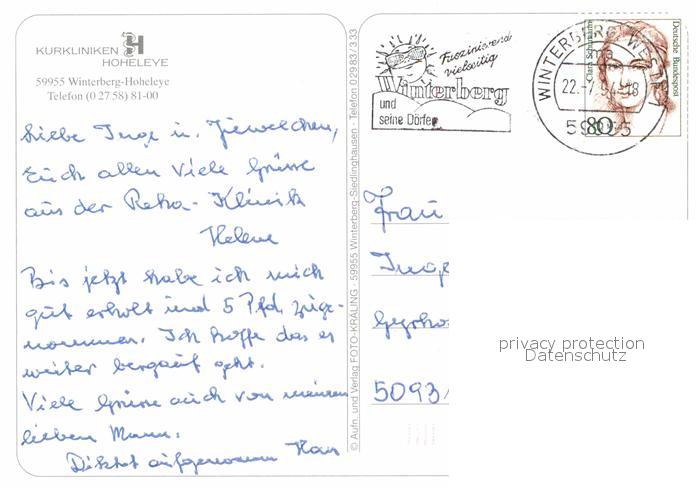 KURKLINIKEN
HOHELEYE
59955 Winterberg-Hoheleye
Telefon (0 27 58) 81-00
Liebe Inge u.
Euch allen viele Grüsse
aus der Reha-Klinik
Helene
Bis jetzt habe ich mich
gut erholt und 5 Pfd. zuge-
nommen. Ich hoffe das es
weiter bergauf geht.
Viele Grüsse auch von meinem
lieben Mann.
Diktat aufgenommen Hans
© Aufn. und Verlag FOTO-KRALING · 59955 Winterberg-Siedlinghausen · Telefon 029 83 / 3 33
Faszinierend
vielseitig
Winterberg
und
seine Dörfer
WINTERBERG, WESTF 1
22.-7.94-18
59955
Deutsche Bundespost
Clara Schumann
80
Frau
Inge
5093
privacy protection
Datenschutz